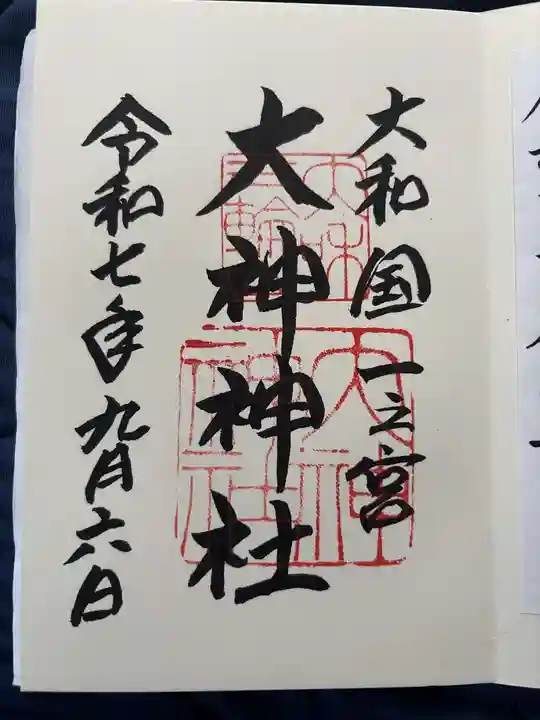 大和国一之宮
大神神社
令和七年九月六日
大神神社